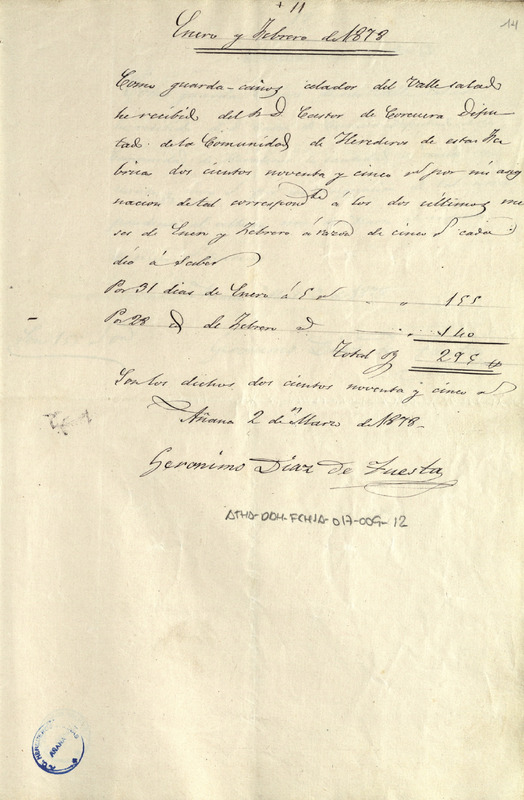 + 11
14
Enero y Febrero de 1878
Como guarda-caños celador del Valle salado
he recibido del S. D. Castor de Corcuera Dipu-
tado de la Comunidad de Herederos de estas Fa-
bricas dos cientos noventa y cinco rs por mi asig
nacion de tal correspondte á los dos últimos me
ses de Enero y Febrero á razon de cinco rs cada
dia á saber
Por 31 dias de Enero á 5 rs " 155
Por 28 id de Febrero id " 140
Total 295
Son los dichos dos cientos noventa y cinco rs
Añana 2 de Marzo de 1878-
Geronimo Diaz de Tuesta
ATHA-DDH-FCHSA-017-009-12